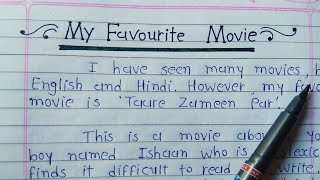 My Favourite Movie
I have seen many movies,
English and Hindi. However, my
movie is 'Taare Zameen Par'.
This is a movie
boy named Ishaan who is
finds it difficult to read